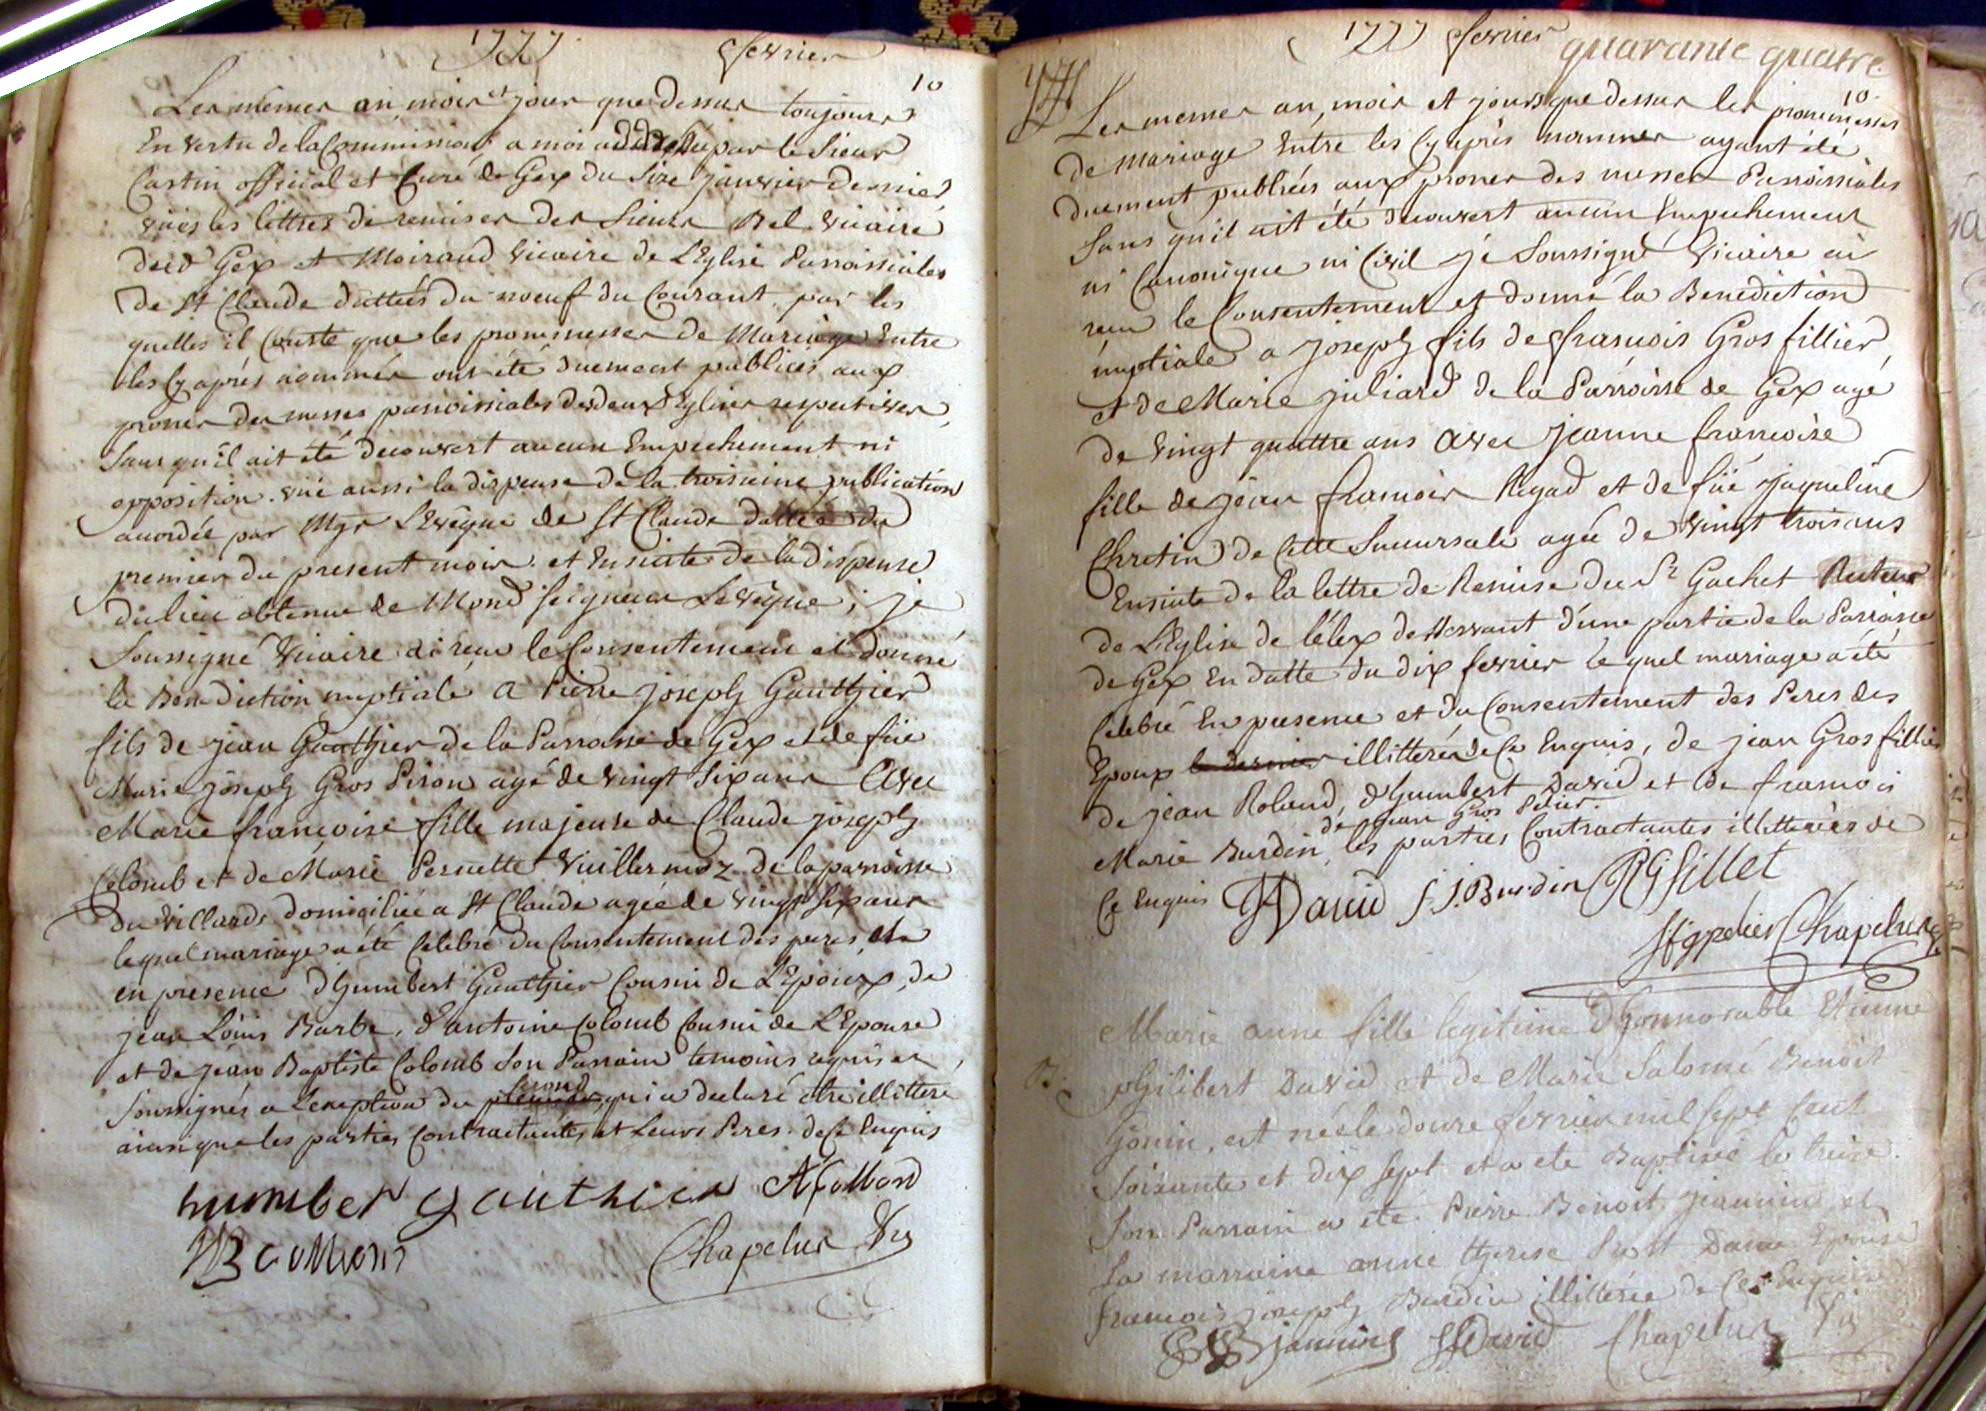 1777. fevrier
10
Les mêmes an mois et jour que dessus toujours
En vertu de la Commission a moi addressée par le Sieur
Castin official et Curé de Gex du Size janvier dernier
vües les lettres de remises des Sieurs Bel vicaire
de Gex et Moiraud vicaire de L'Eglise Parroissiales
de St Claude dattées du noeuf du Courant par les
quelles il Conste que les prommesses de Mariage Entre
les Cy aprés nommés ont été duement publiées aux
prones des messes parroissiales des deux Eglises respectives,
Sans qu'il ait été decouvert aucun Empechement ni
opposition. vüe aussi la dispense de la troisieme publication
accordée par Mgr L'Evêque de St Claude dattée du
premier du present mois. et Ensuite de la dispense
du lieu obtenue de Mond Seigneur L'Evêque ; je
Soussigné Vicaire ai reçu le Consentement et donné
la Benediction nuptiale a Pierre joseph Gauthier
fils de jean Gauthier de la Parroisse de Gex et de füe
Marie joseph Gros Piron agé de vingt Six ans Avec
Marie françoise fille majeure de Claude joseph
Colomb et de Marie Pernette Vuillermoz de la parroisse
du Villards domiciliée a St Claude agée de vingt Six ans
lequel mariage a été Celebré du Consentement des peres, et
en presence d'humbert Gauthier Cousin de L'Epoux, de
jean Loüis Barbe, d'antoine Colomb Cousin de L'Epouse
et de jean Baptiste Colomb Son Parrain temoins requis et
second
Soussignés a L'exception du qui a declaré etre illitteré
ainsi que les parties Contractantes et Leurs Peres. de Ce Enquis
humber gauthier
Chapelur Vic
1777 fevrier quarante quatre.
10.
Les memes an, mois et jours que dessus les prommesses
de Mariage Entre les Cy après nommes ayant été
duement publiées aux prones des messes Parroissiales
Sans qu'il ait été decouvert aucun Empechement
ni Canonique ni Civil je Soussigné Vicaire ai
reçu le Consentement et donné la Benediction
nuptiale a joseph fils de françois Gros fillier
et de Marie juliard de la Parroisse de Gex agé
de Vingt quattre ans avec jeanne françoise
fille de jean francois Regad et de füe jaqueline
Chretin de Cette Succursale agée de vingt trois ans
Ensuite de la lettre de Remise du Sr Gachet Recteur
de L'Eglise de lélex desservant d'une partie de la Parroisse
de Gex En datte du dix fevrier le quel mariage a été
Celebré En presence et du Consentement des Peres des
Epoux le dernier illitterés de Ce Enquis, de jean Gros fillier
de jean Roland, d'humbert David et de francois
de jean Gros Pelier.
Marie Burdin, les parties Contractantes illitterées de
Ce Enquis HDavid f. J. Burdin RGfillet
JfGpelier Chapelur
B.
Marie anne fille legitime d'honnorable Etienne
philibert David et de Marie Salomé Benoit
jonin, est née le douze fevrier mil sept Cent
Soixante et dix sept et a ete Baptisée le treize.
Son Parrain a été Pierre Benoit jeannin et
Sa marraine anne therese David Epouse
francois joseph Burdin illitterée de Ce Enquise
jannin David Chapelur Vic